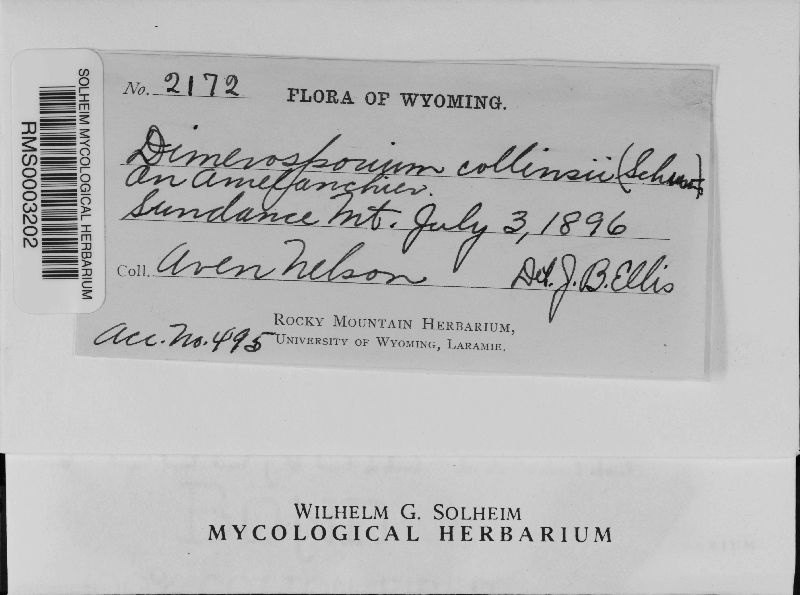 SOLHEIM MYCOLOGICAL HERBARIUM
RMS0003202
No. 2172
FLORA OF WYOMING.
Dimerosporium collinsii (Schw)
on amelanchier.
Sundance Mt. July 3, 1896
Coll. Aven Nelson Det. J. B. Ellis
ROCKY MOUNTAIN HERBARIUM,
Acc. No. 495 UNIVERSITY OF WYOMING, LARAMIE.
WILHELM G. SOLHEIM
MYCOLOGICAL HERBARIUM